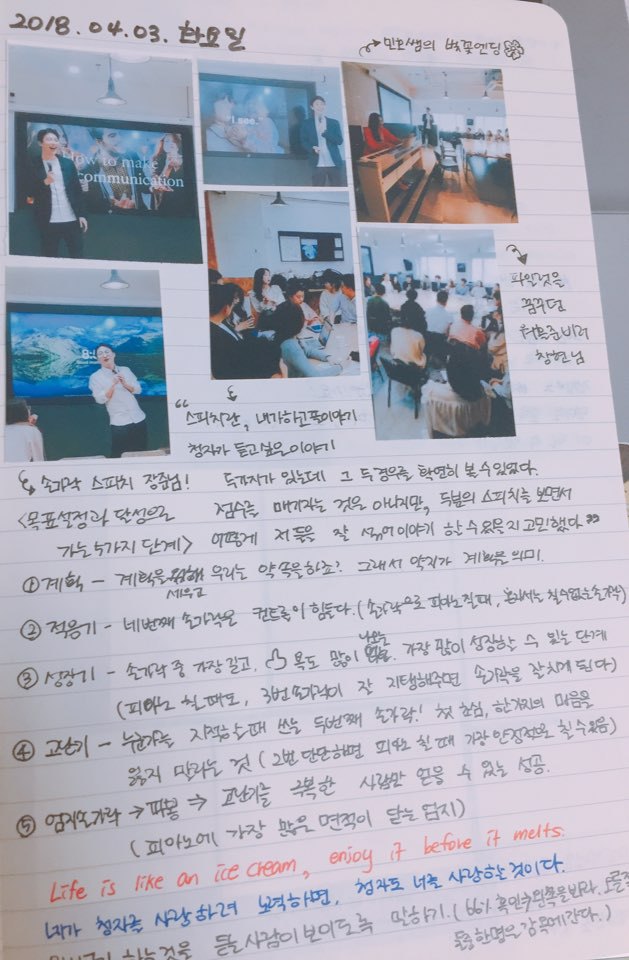 2018. 04. 03. 화요일
민호쌤의 벚꽃엔딩
How to make
communication
I see.
파일럿을
꿈꾸던
창현님
"스피치란, 내가하고픈이야기
청자가 듣고싶은 이야기
손가락 스피치 장준님! 두가지가 있는데 그 두경우를 확연히 볼수있었다.
<목표설정과 달성으로 점수를 매기자는 것은 아니지만, 두분의 스피치를 보면서
가는 5가지 단계> 어떻게 저 둘을 잘 섞어 이야기 할수있을지 고민했다"
① 계획 - 계획을 세우고 우리는 약속을하죠? 그래서 약지가 계획을 의미.
② 적응기 - 네번째 손가락은 컨트롤이 힘들다. (손가락으로 피아노칠때,
③ 성장기 - 손가락 중 가장 길고, 욕도 많이 나오는 가장 많이 성장할 수 있는 단계
(피아노 칠때도, 3번 손가락이 잘 지탱해주면 손가락을 잘치게 된다)
④ 고난기 - 누군가를 지적할때 쓰는 두번째 손가락! 첫 한심, 한가지의 마음을
잃지 말라는 것 (2번 단단하면 피아노 칠때 가장 안정적으로 칠수있음)
⑤ 엄지손가락 → 따봉 ⇒ 고난기를 극복한 사람만 얻을 수 있는 성공.
(피아노에 가장 많은 면적이 닿는 엄지)
Life is like an ice cream, enjoy it before it melts.
내가 청자를 사랑하려 노력하면, 청자도 너를 사랑하는것이다.
하는것을 들을 사람이 보이도록 말하기. (66%